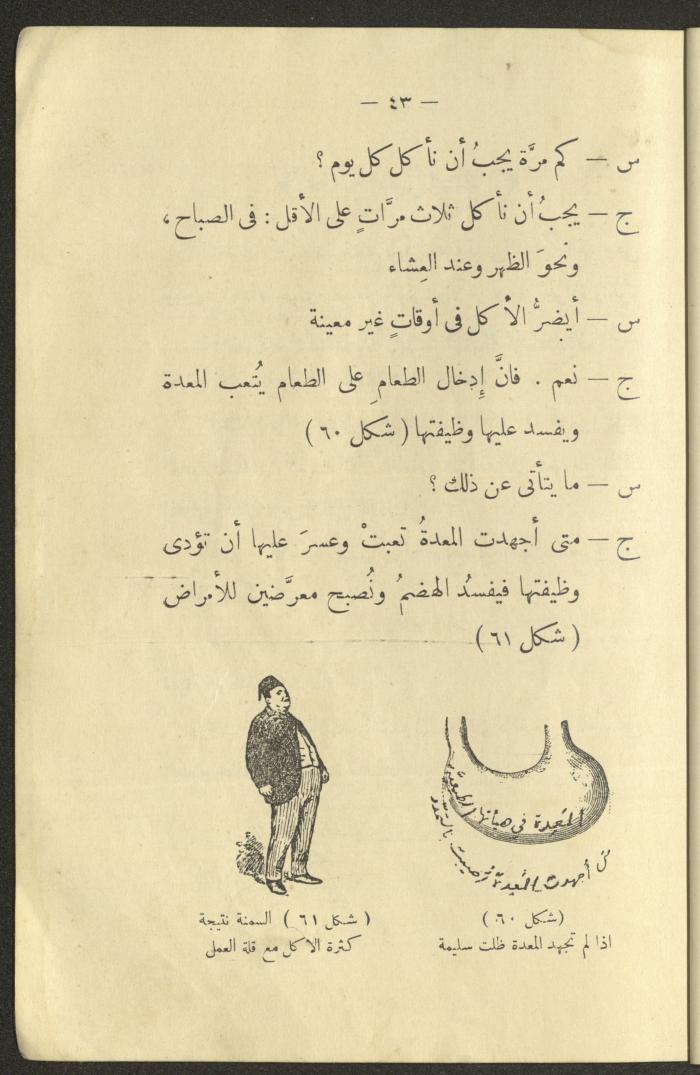 — ٤٣ —
س — كم مرَّة يجبُ أن نأكل كل يوم ؟
ج — يجبُ أن نأكل ثلاث مرَّاتٍ على الأقل : فى الصباح ،
ونحوَ الظهر وعند العِشاء
س — أيضرُّ الأكل فى أوقاتٍ غير معينة
ج — نعم . فانَّ إِدخال الطعامِ على الطعام يُتعب المعدة
ويفسد عليها وظيفتها ( شكل ٦٠ )
س — ما يتأتى عن ذلك ؟
ج — متى أجهدت المعدةُ تعبتْ وعسرَ عليها أن تؤدى
وظيفتها فيفسدُ الهضمُ ونُصبح معرَّضين للأمراض
( شكل ٦١ )
المعدة في هيأتها الطبيعية
أجهدت المعدة أصيبت بالتمدد
( شكل ٦٠ )
اذا لم تجهد المعدة ظلت سليمة
( شكل ٦١ ) السمنة نتيجة
كثرة الاكل مع قلة العمل